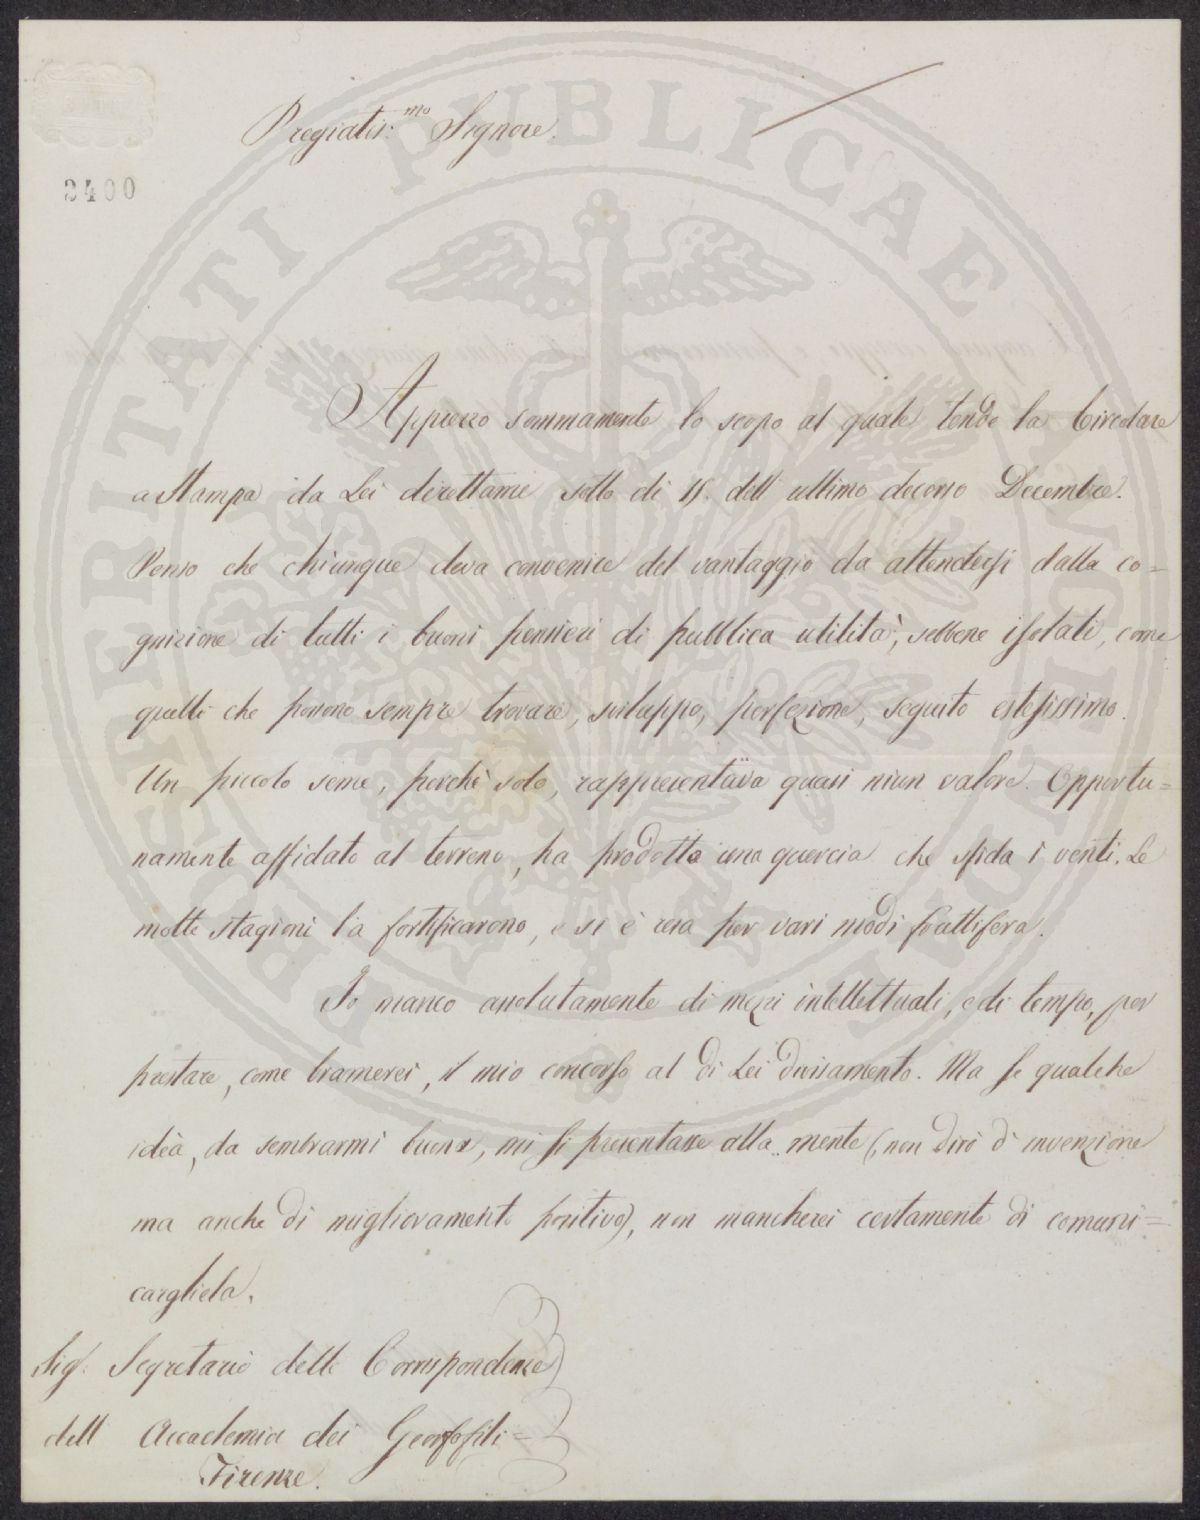 Pregiatis.mo Signore.
2400
Apprezzo sommamente lo scopo al quale tende la Circolare
a Stampa da Lei direttame sotto di 15. dell ultimo decorso Decembre.
Penso che chiunque deva convenire del vantaggio da attendersi dalla co=
gnizione di tutti i buoni pensieri di pubblica utilità, sebbene isolati, come
quelli che possono sempre trovare, sviluppo, perfezione, seguito estesissimo.
Un piccolo seme, perchè solo, rappresentava quasi niun valore. Opportu=
namente affidato al terreno, ha prodotto una quercia che sfida i venti. Le
molte stagioni la fortificarono, e si è resa per vari modi fruttifera.
Io manco assolutamente di mezzi intellettuali, e di tempo, per
prestare, come bramerei, il mio concorso al di Lei divisamento. Ma se qualche
idea, da sembrarmi buona, mi si presentasse alla mente (non dirò d'invenzione
ma anche di miglioramento positivo), non mancherei certamente di comuni=
cargliela.
Sig. Segretario delle Corrispondenze
dell Accademia dei Georgofili=
Firenze.
PROSPERITATI PUBLICAE AUGENDAE